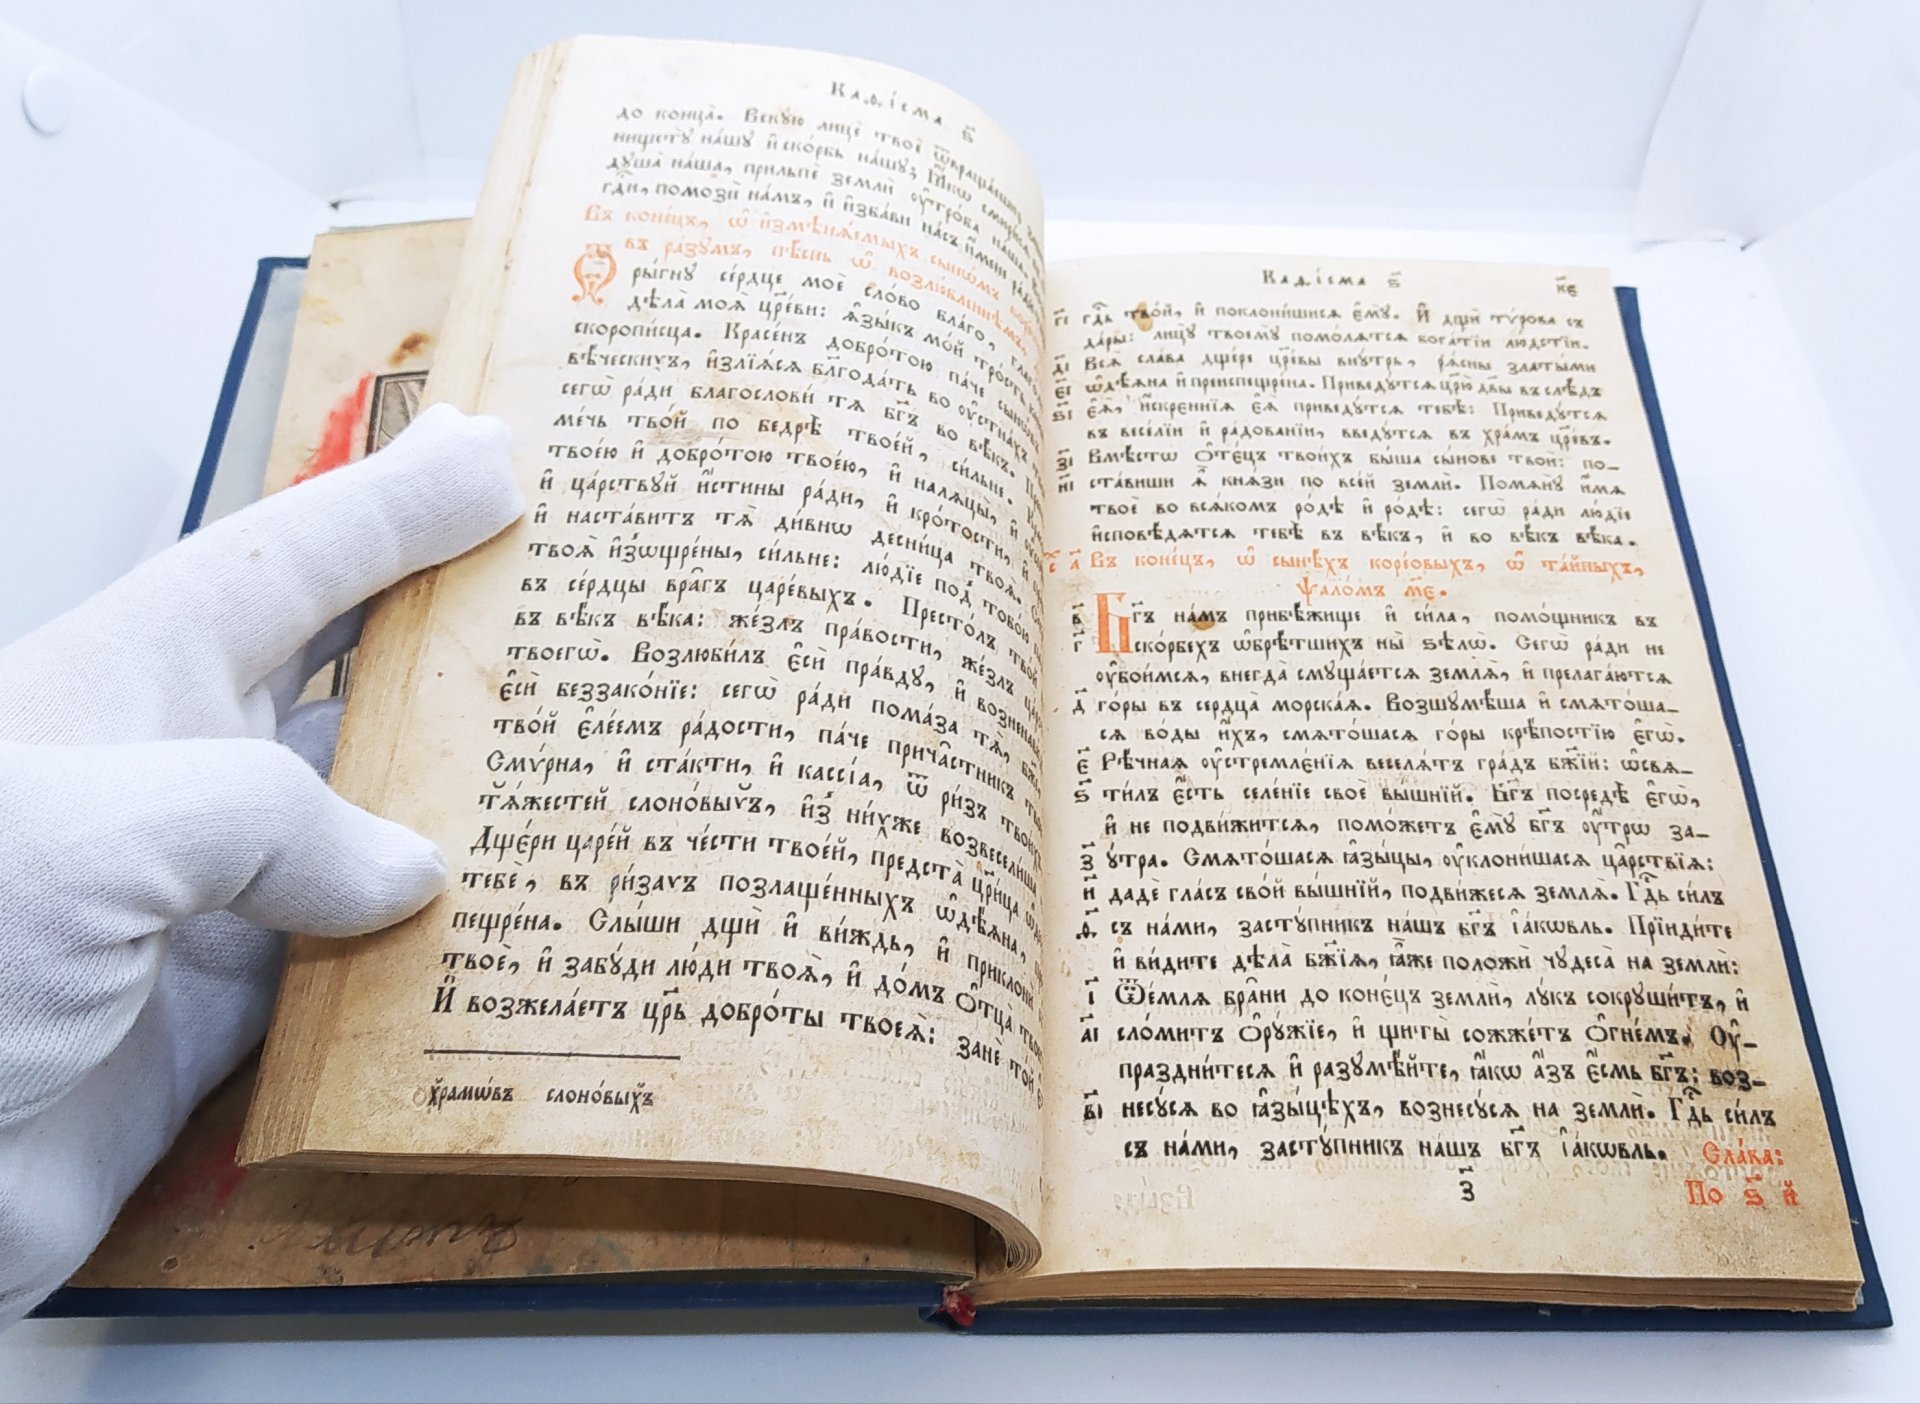 Каѳі́сма ѕ҃
до конца̀. Вскꙋ́ю лицѐ твоѐ ѿвраща́еши,
нищетꙋ̀ на́шꙋ и҆ ско́рбь на́шꙋ; Ꙗ҆́кѡ смири́сѧ
дꙋша̀ на́ша, прильпѐ землѝ ᲂу҆тро́ба на́ша.
гдⷭ҇и, помозѝ на́мъ, и҆ и҆зба́ви на́съ и҆́мене ра́ди
Въ коне́цъ, ѡ҆ и҆змѣнѧ́емыхъ сынѡ́мъ
въ ра́зꙋмъ, пѣ́снь ѡ҆ возлю́бленнѣмъ,
Ѿры́гнꙋ се́рдце моѐ сло́во бла́го,
дѣла̀ моѧ̀ цр҃е́ви: ѧ҆зы́къ мо́й тро́сть
скоропи́сца. Красе́нъ добро́тою па́че сынѡ́въ
вѣ́ческихъ, и҆злїѧ́сѧ блгⷣода́ть во ᲂу҆стна́хъ
сегѡ̀ ра́ди благословѝ тѧ̀ бг҃ъ во вѣ́къ.
ме́чь тво́й по бедрѣ̀ твое́й, си́льне.
твое́ю и҆ добро́тою твое́ю, и҆ налѧцы̀, и҆
и҆ ца́рствꙋй и҆́стины ра́ди, и҆ кро́тости, и҆
и҆ наста́витъ тѧ̀ ди́внѡ десни́ца твоѧ̀.
твоѧ̀ и҆зѡщре́ны, си́льне: лю́дїе под̾ тобо́ю
въ се́рдцы вра̑гъ царе́выхъ. Престо́лъ тво́й
въ вѣ́къ вѣ́ка: же́злъ пра́вости, же́злъ
твоегѡ̀. Возлюби́лъ є҆сѝ пра́вдꙋ, и҆
є҆сѝ беззако́нїе: сегѡ̀ ра́ди пома́за тѧ̀,
тво́й є҆ле́емъ ра́дости, па́че прича̑стникъ
Смѵ́рна, и҆ ста́кти, и҆ кассі́а, ѿ ри́зъ твои́хъ
тѧ́жестей слоно́выхъ, и҆з̾ ни́хже возвесели́ша
Дще́ри царе́й въ че́сти твое́й, предста̀ цр҃и́ца
тебѐ, въ ри́захъ позлаще́нныхъ ѡ҆дѣ́ѧна,
пещре́на. Слы́ши дщѝ и҆ ви́ждь, и҆ приклонѝ
твоѐ, и҆ забꙋ́ди лю́ди твоѧ̀, и҆ до́мъ ѻ҆тца̀
И҆ возжела́етъ цр҃ь добро́ты твоеѧ̀: занѐ то́й
хра́мѡвъ слоно́выхъ
Каѳі́сма ѕ҃ к҃ѳ
г҃і гдⷭ҇ь тво́й, и҆ поклони́шисѧ є҆мꙋ̀. И҆ дщѝ тѵ́рова съ
да́ры: лицꙋ̀ твоемꙋ̀ помо́лѧтсѧ бога́тїи лю́дстїи.
д҃і Всѧ̀ сла́ва дще́ре цр҃е́вы внꙋ́трь, рѧ́сны златы́ми
є҃і ѡ҆дѣ́ѧна и҆ преиспещре́на. Приведꙋ́тсѧ цр҃ю̀ дв҃ы въ слѣ́дъ
ѕ҃і є҆ѧ̀, и҆́скреннїѧ є҆ѧ̀ приведꙋ́тсѧ тебѣ̀: Приведꙋ́тсѧ
въ весе́лїи и҆ ра́дованїи, введꙋ́тсѧ въ хра́мъ цр҃е́въ.
з҃і Вмѣ́стѡ ѻ҆те́цъ твои́хъ бы́ша сы́нове твоѝ: по-
и҃і ста́виши ѧ҆̀ кнѧ́зи по все́й землѝ. Помѧнꙋ̀ и҆́мѧ
твоѐ во всѧ́комъ ро́дѣ и҆ ро́дѣ: сегѡ̀ ра́ди лю́дїе
и҆сповѣ́дѧтсѧ тебѣ̀ въ вѣ́къ, и҆ во вѣ́къ вѣ́ка.
а҃ Въ коне́цъ, ѡ҆ сынѣ́хъ коре́овыхъ, ѡ҆ та́йныхъ,
ѱало́мъ м҃е.
в҃ Бг҃ъ на́мъ прибѣ́жище и҆ си́ла, помо́щникъ въ
г҃ ско́рбехъ ѡ҆брѣ́тшихъ ны̀ ѕѣлѡ̀. Сегѡ̀ ра́ди не
ᲂу҆бои́мсѧ, внегда̀ смꙋща́етсѧ землѧ̀, и҆ прелага́ютсѧ
д҃ го́ры въ сердца̀ морска́ѧ. Возшꙋмѣ́ша и҆ смѧто́ша-
сѧ во́ды и҆́хъ, смѧто́шасѧ го́ры крѣ́постїю є҆гѡ̀.
є҃ Рѣ́чнаѧ ᲂу҆стремле́нїѧ веселѧ́тъ гра́дъ бж҃їй: ѡ҆свѧ-
ѕ҃ ти́лъ є҆́сть селе́нїе своѐ вы́шнїй. Бг҃ъ посредѣ̀ є҆гѡ̀,
и҆ не подви́житсѧ, помо́жетъ є҆мꙋ̀ бг҃ъ ᲂу҆́трѡ за-
з҃ ꙋ́тра. Смѧто́шасѧ ꙗ҆зы́цы, ᲂу҆клони́шасѧ ца́рствїѧ:
и҃ дадѐ гла́съ сво́й вы́шнїй, подви́жесѧ землѧ̀. Гдⷭ҇ь си́лъ
ѳ҃ съ на́ми, застꙋ́пникъ на́шъ бг҃ъ і҆а́кѡвль. Прїиди́те
и҆ ви́дите дѣла̀ бж҃їѧ, ꙗ҆̀же положѝ чꙋдеса̀ на землѝ:
і҃ Ѿе́млѧ бра̑ни до коне́цъ землѝ, лꙋ́къ сокрꙋши́тъ, и҆
а҃і сло́митъ ѻ҆рꙋ́жїе, и҆ щиты̀ сожже́тъ ѻ҆гне́мъ. Оу҆-
праздни́тесѧ и҆ разꙋмѣ́йте, ꙗ҆́кѡ а҆́зъ є҆́смь бг҃ъ: воз-
в҃і несꙋ́сѧ во ꙗ҆зы́цѣхъ, вознесꙋ́сѧ на землѝ. Гдⷭ҇ь си́лъ
съ на́ми, застꙋ́пникъ на́шъ бг҃ъ і҆а́кѡвль. Сла́ва:
з҃ По ѕ҃ й